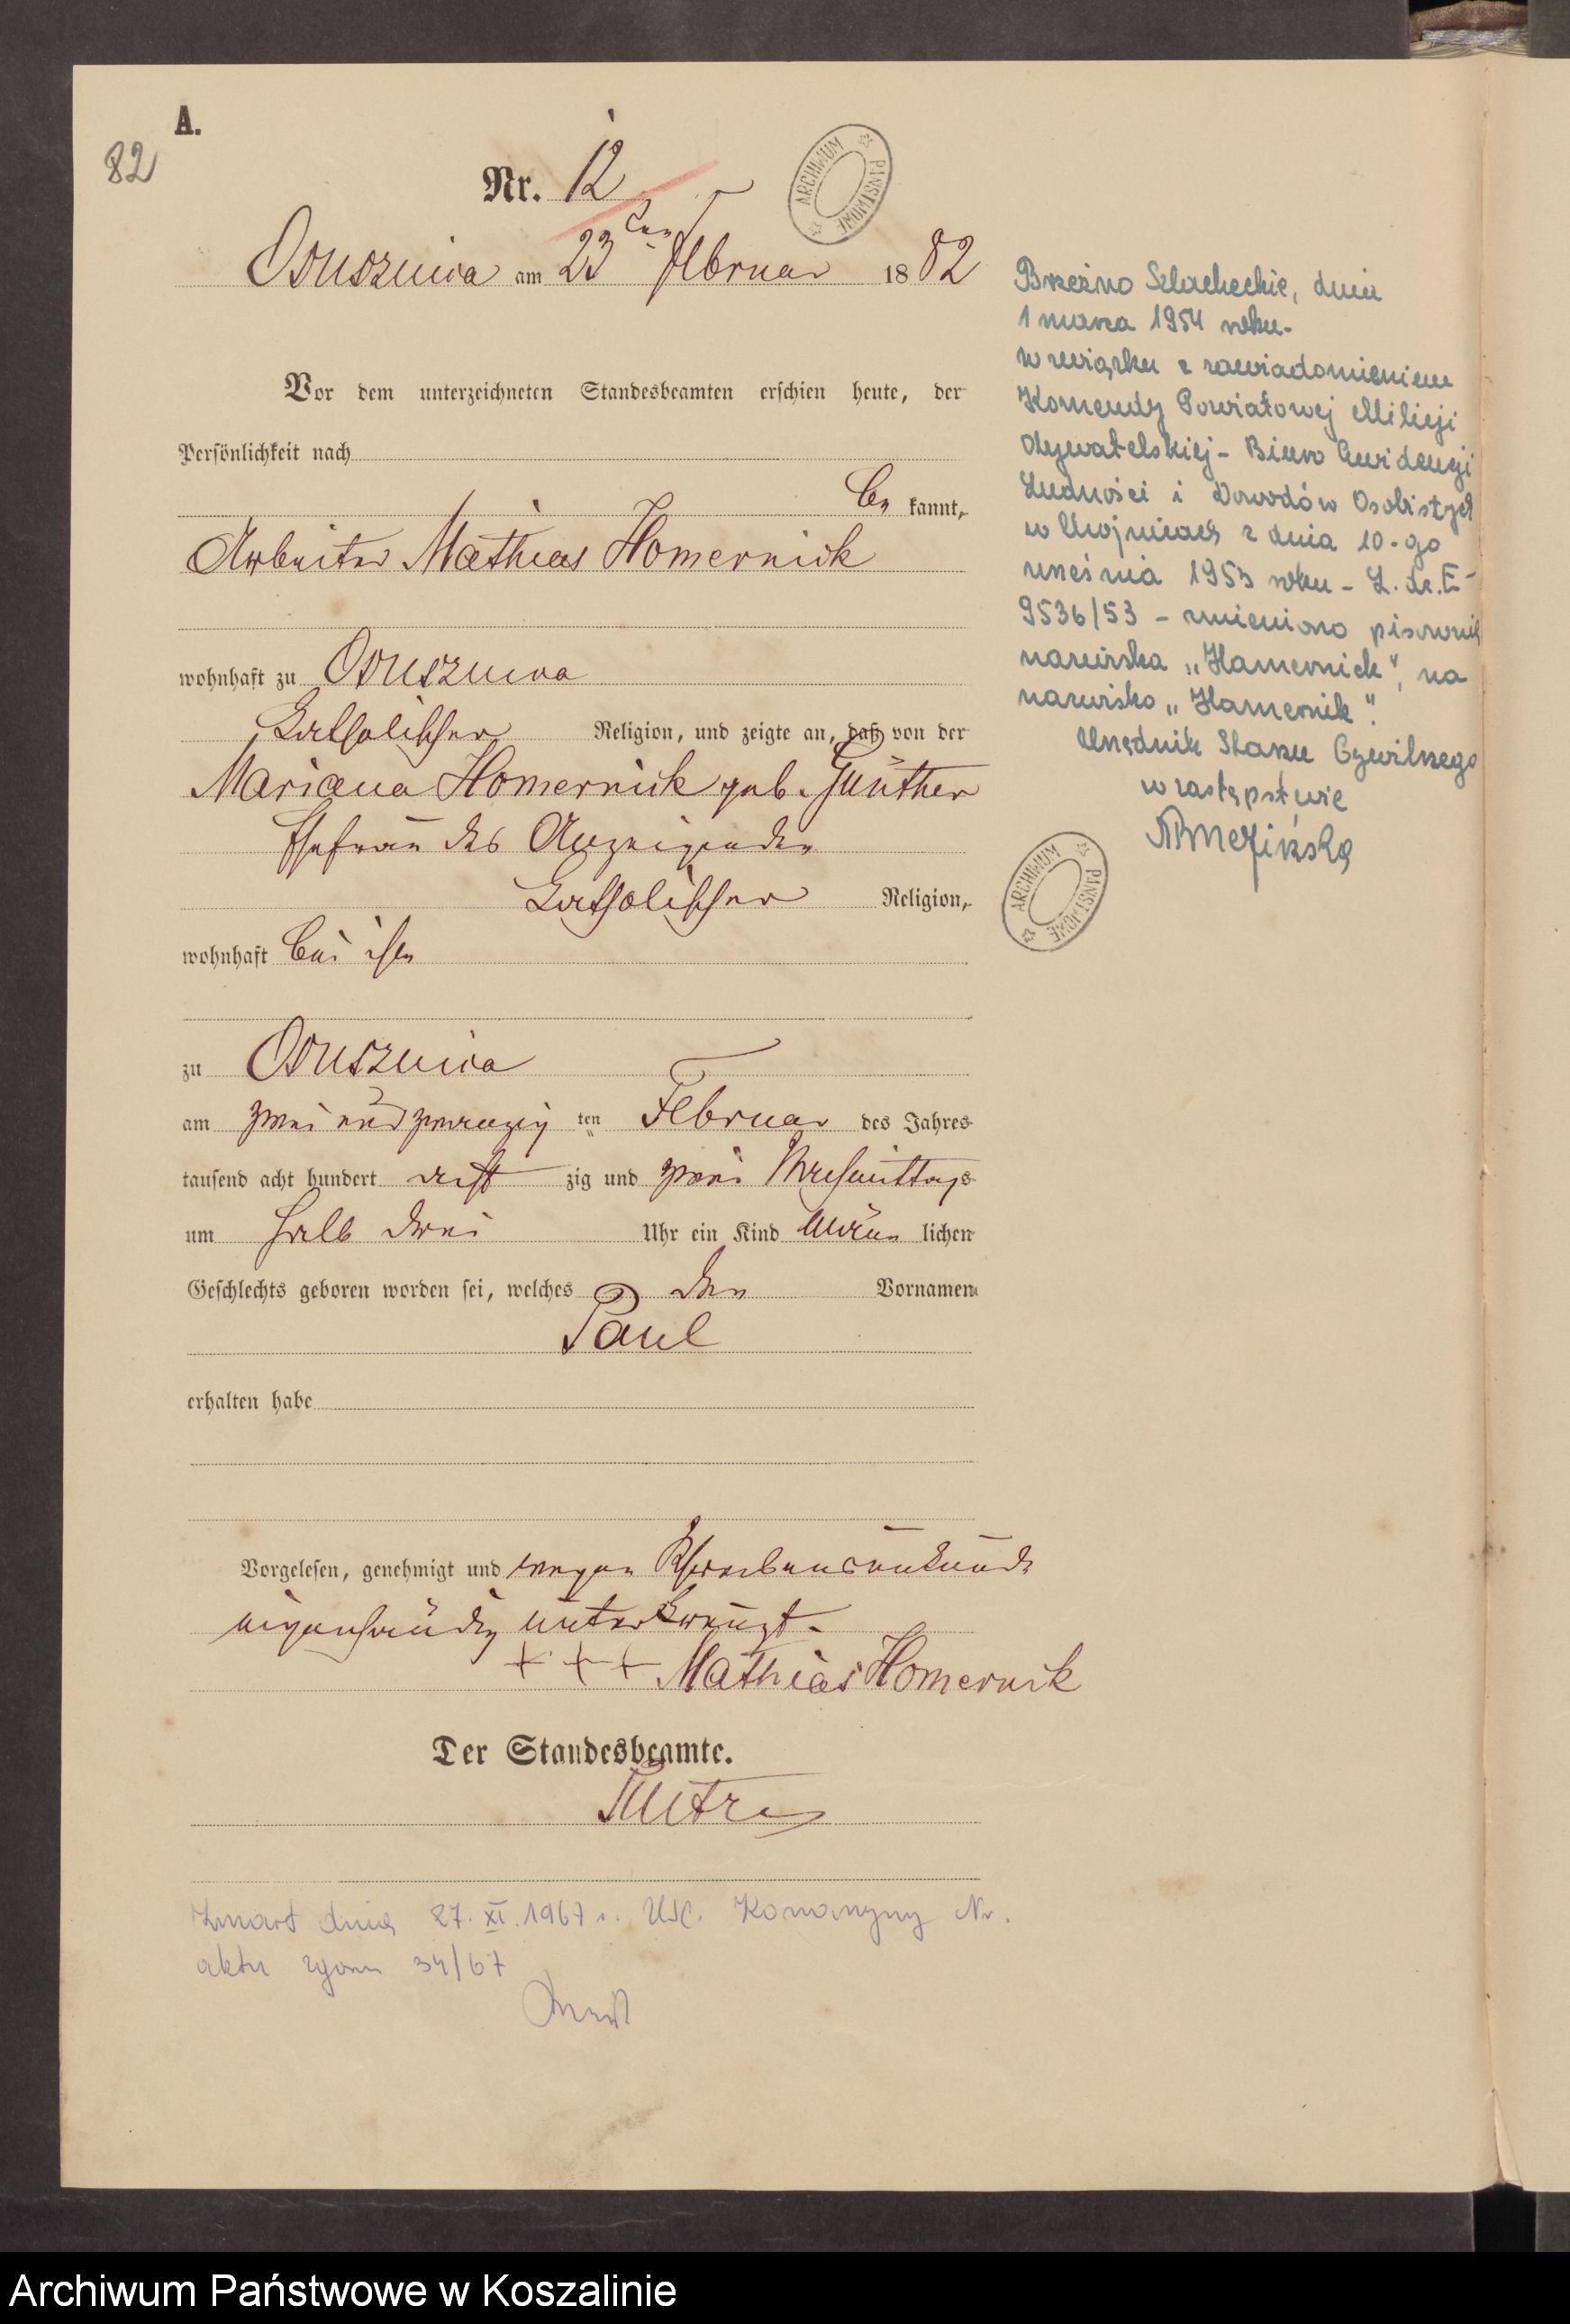 A.
82
Nr. 12
Ossusznica am 23ten Februar 1882
Vor dem unterzeichneten Standesbeamten erschien heute, der
Persönlichkeit nach
be kannt,
Arbeiter Mathias Homernick
wohnhaft zu Ossusznica
katholischer Religion, und zeigte an, daß von der
Mariana Homernick geb. Günther
Ehefrau des Anzeigenden
katholischer Religion,
wohnhaft bei ihm
zu Ossusznica
am zwei und zwanzig ten Februar des Jahres
tausend acht hundert acht zig und zwei Nachmittags
um halb drei Uhr ein Kind männ lichen
Geschlechts geboren worden sei, welches den Vornamen
Paul
erhalten habe
Vorgelesen, genehmigt und wegen Schreibensunkunde
eigenhändig unterkreuzt.
+ + + Mathias Homernick
Der Standesbeamte.
Zmarł dnia 27.XI.1967 r. USC. Konarzyny Nr.
aktu zgonu 34/67
Brzeźno Szlacheckie, dnia
1 marca 1954 roku-
w związku z zawiadomieniem
Komendy Powiatowej Milicji
Obywatelskiej - Biuro Ewidencji
Ludności i Dowodów Osobistych
w Chojnicach z dnia 10-go
września 1953 roku - L. dz. E-
9536/53 - zmieniono pisownię
nazwiska „Hamernick", na
nazwisko „Hamernik".
Urzędnik Stanu Cywilnego
w zastępstwie
ARCHIWUM PAŃSTWOWE
ARCHIWUM PAŃSTWOWE
Archiwum Państwowe w Koszalinie